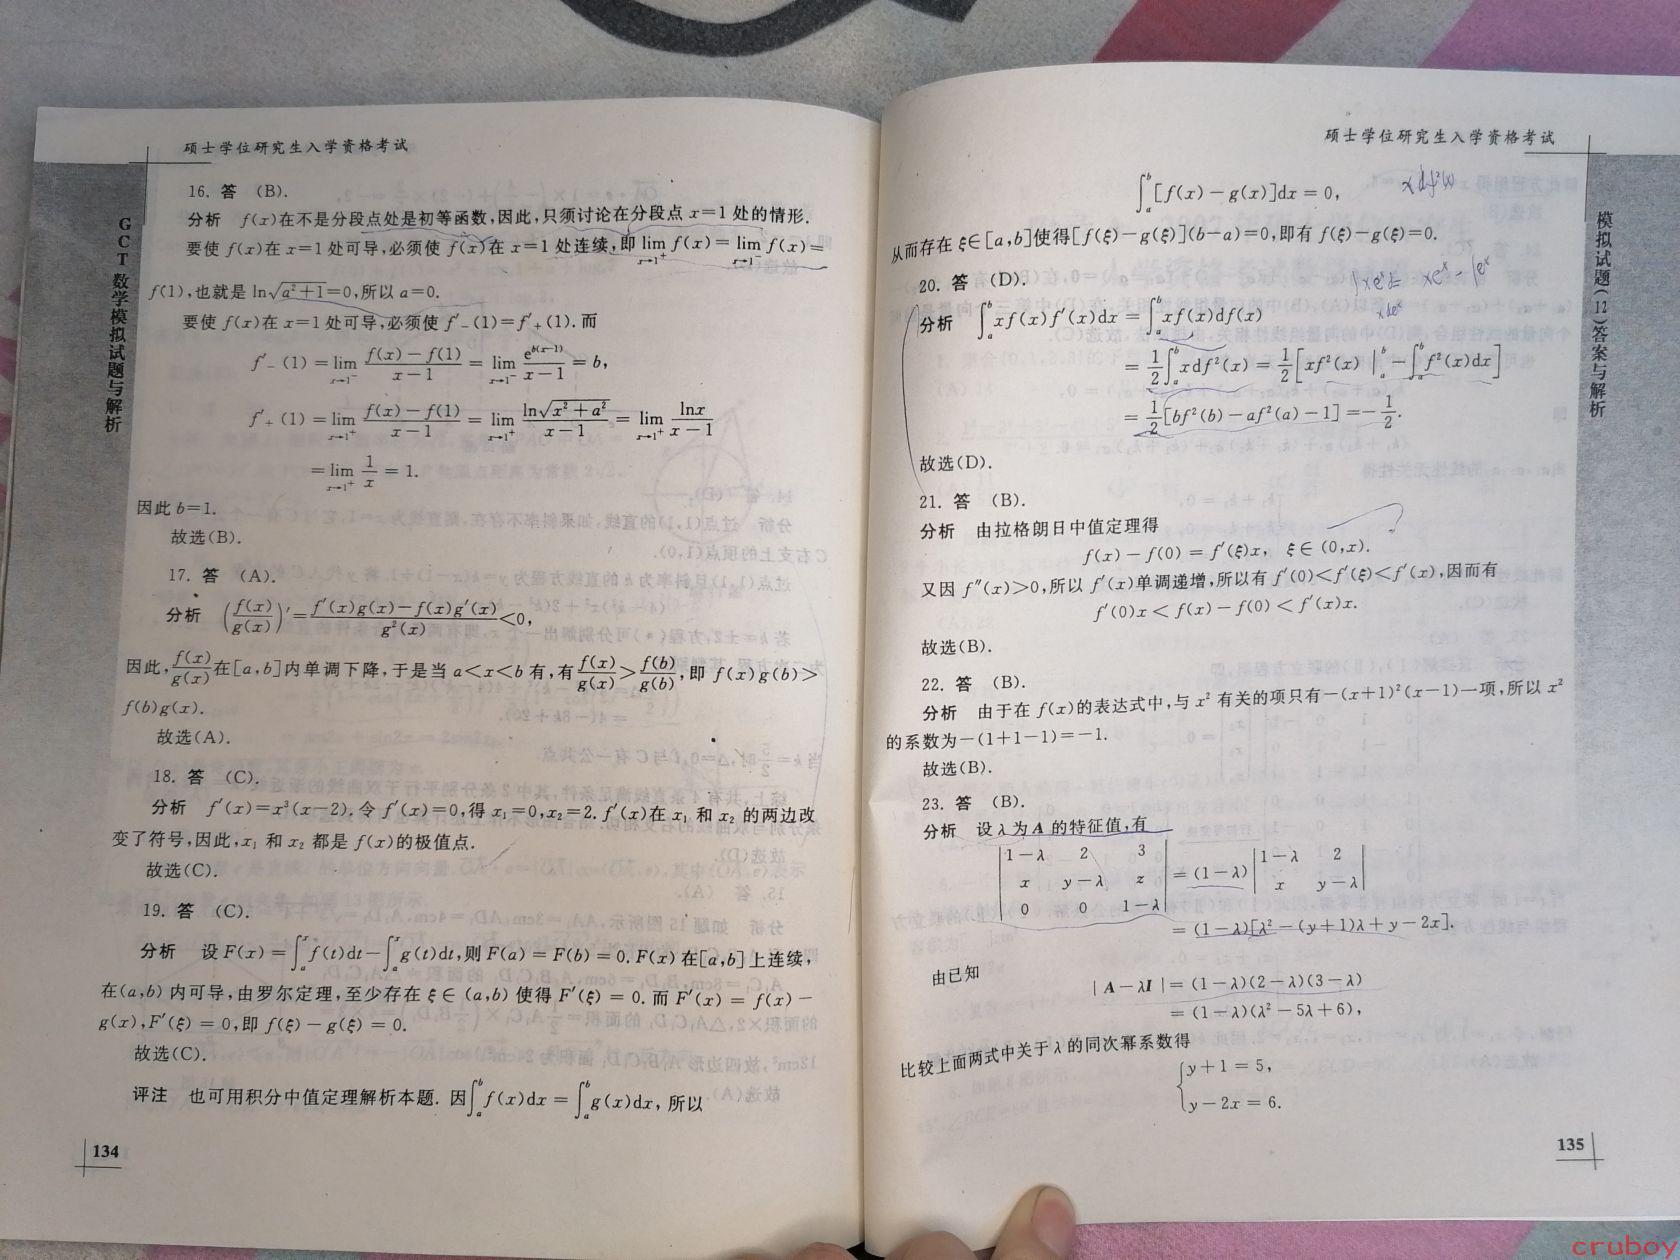 硕士学位研究生入学资格考试
GCT数学模拟试题与解析
16. 答 (B).
分析 f(x)在不是分段点处是初等函数,因此,只须讨论在分段点 x=1 处的情形.
要使 f(x)在 x=1 处可导,必须使 f(x)在 x=1 处连续,即 lim_{x→1⁺} f(x)=lim_{x→1⁻} f(x)=
f(1),也就是 ln√(a²+1)=0,所以 a=0.
要使 f(x)在 x=1 处可导,必须使 f′₋(1)=f′₊(1).而
f′₋(1)=lim_{x→1⁻} (f(x)-f(1))/(x-1) = lim_{x→1⁻} e^{b(x-1)}/(x-1) = b,
f′₊(1)=lim_{x→1⁺} (f(x)-f(1))/(x-1) = lim_{x→1⁺} ln√(x²+a²)/(x-1) = lim_{x→1⁺} lnx/(x-1)
=lim_{x→1⁺} 1/x = 1.
因此 b=1.
故选(B).
17. 答 (A).
分析 (f(x)/g(x))′=(f′(x)g(x)-f(x)g′(x))/g²(x)<0,
因此,f(x)/g(x)在[a,b]内单调下降,于是当 a<x<b 有,有 f(x)/g(x)>f(b)/g(b),即 f(x)g(b)>
f(b)g(x).
故选(A).
18. 答 (C).
分析 f′(x)=x³(x-2).令 f′(x)=0,得 x₁=0,x₂=2.f′(x)在 x₁ 和 x₂ 的两边改
变了符号,因此,x₁ 和 x₂ 都是 f(x)的极值点.
故选(C).
19. 答 (C).
分析 设 F(x)=∫ₐˣ f(t)dt-∫ₐˣ g(t)dt,则 F(a)=F(b)=0.F(x)在[a,b]上连续,
在(a,b)内可导,由罗尔定理,至少存在 ξ∈(a,b)使得 F′(ξ)=0.而 F′(x)=f(x)-
g(x),F′(ξ)=0,即 f(ξ)-g(ξ)=0.
故选(C).
评注 也可用积分中值定理解析本题.因∫ₐᵇ f(x)dx=∫ₐᵇ g(x)dx,所以
134
硕士学位研究生入学资格考试
模拟试题(12)答案与解析
∫ₐᵇ [f(x)-g(x)]dx=0,
x df²(x)
从而存在 ξ∈[a,b]使得[f(ξ)-g(ξ)](b-a)=0,即有 f(ξ)-g(ξ)=0.
20. 答 (D).
分析 ∫ₐᵇ xf(x)f′(x)dx=∫ₐᵇ xf(x)df(x)
=1/2∫ₐᵇ xdf²(x)=1/2[xf²(x)|ₐᵇ-∫ₐᵇ f²(x)dx]
=1/2[bf²(b)-af²(a)-1]=-1/2.
故选(D).
21. 答 (B).
分析 由拉格朗日中值定理得
f(x)-f(0)=f′(ξ)x, ξ∈(0,x).
又因 f″(x)>0,所以 f′(x)单调递增,所以有 f′(0)<f′(ξ)<f′(x),因而有
f′(0)x<f(x)-f(0)<f′(x)x.
故选(B).
22. 答 (B).
分析 由于在 f(x)的表达式中,与 x² 有关的项只有-(x+1)²(x-1)一项,所以 x²
的系数为-(1+1-1)=-1.
故选(B).
23. 答 (B).
分析 设 λ 为 A 的特征值,有
|1-λ 2 3|
|x y-λ z| =(1-λ) |1-λ 2; x y-λ|
|0 0 1-λ|
=(1-λ)[λ²-(y+1)λ+y-2x].
由已知
|A-λI|=(1-λ)(2-λ)(3-λ)
=(1-λ)(λ²-5λ+6),
比较上面两式中关于 λ 的同次幂系数得
{y+1=5,
y-2x=6.
135
cruboy